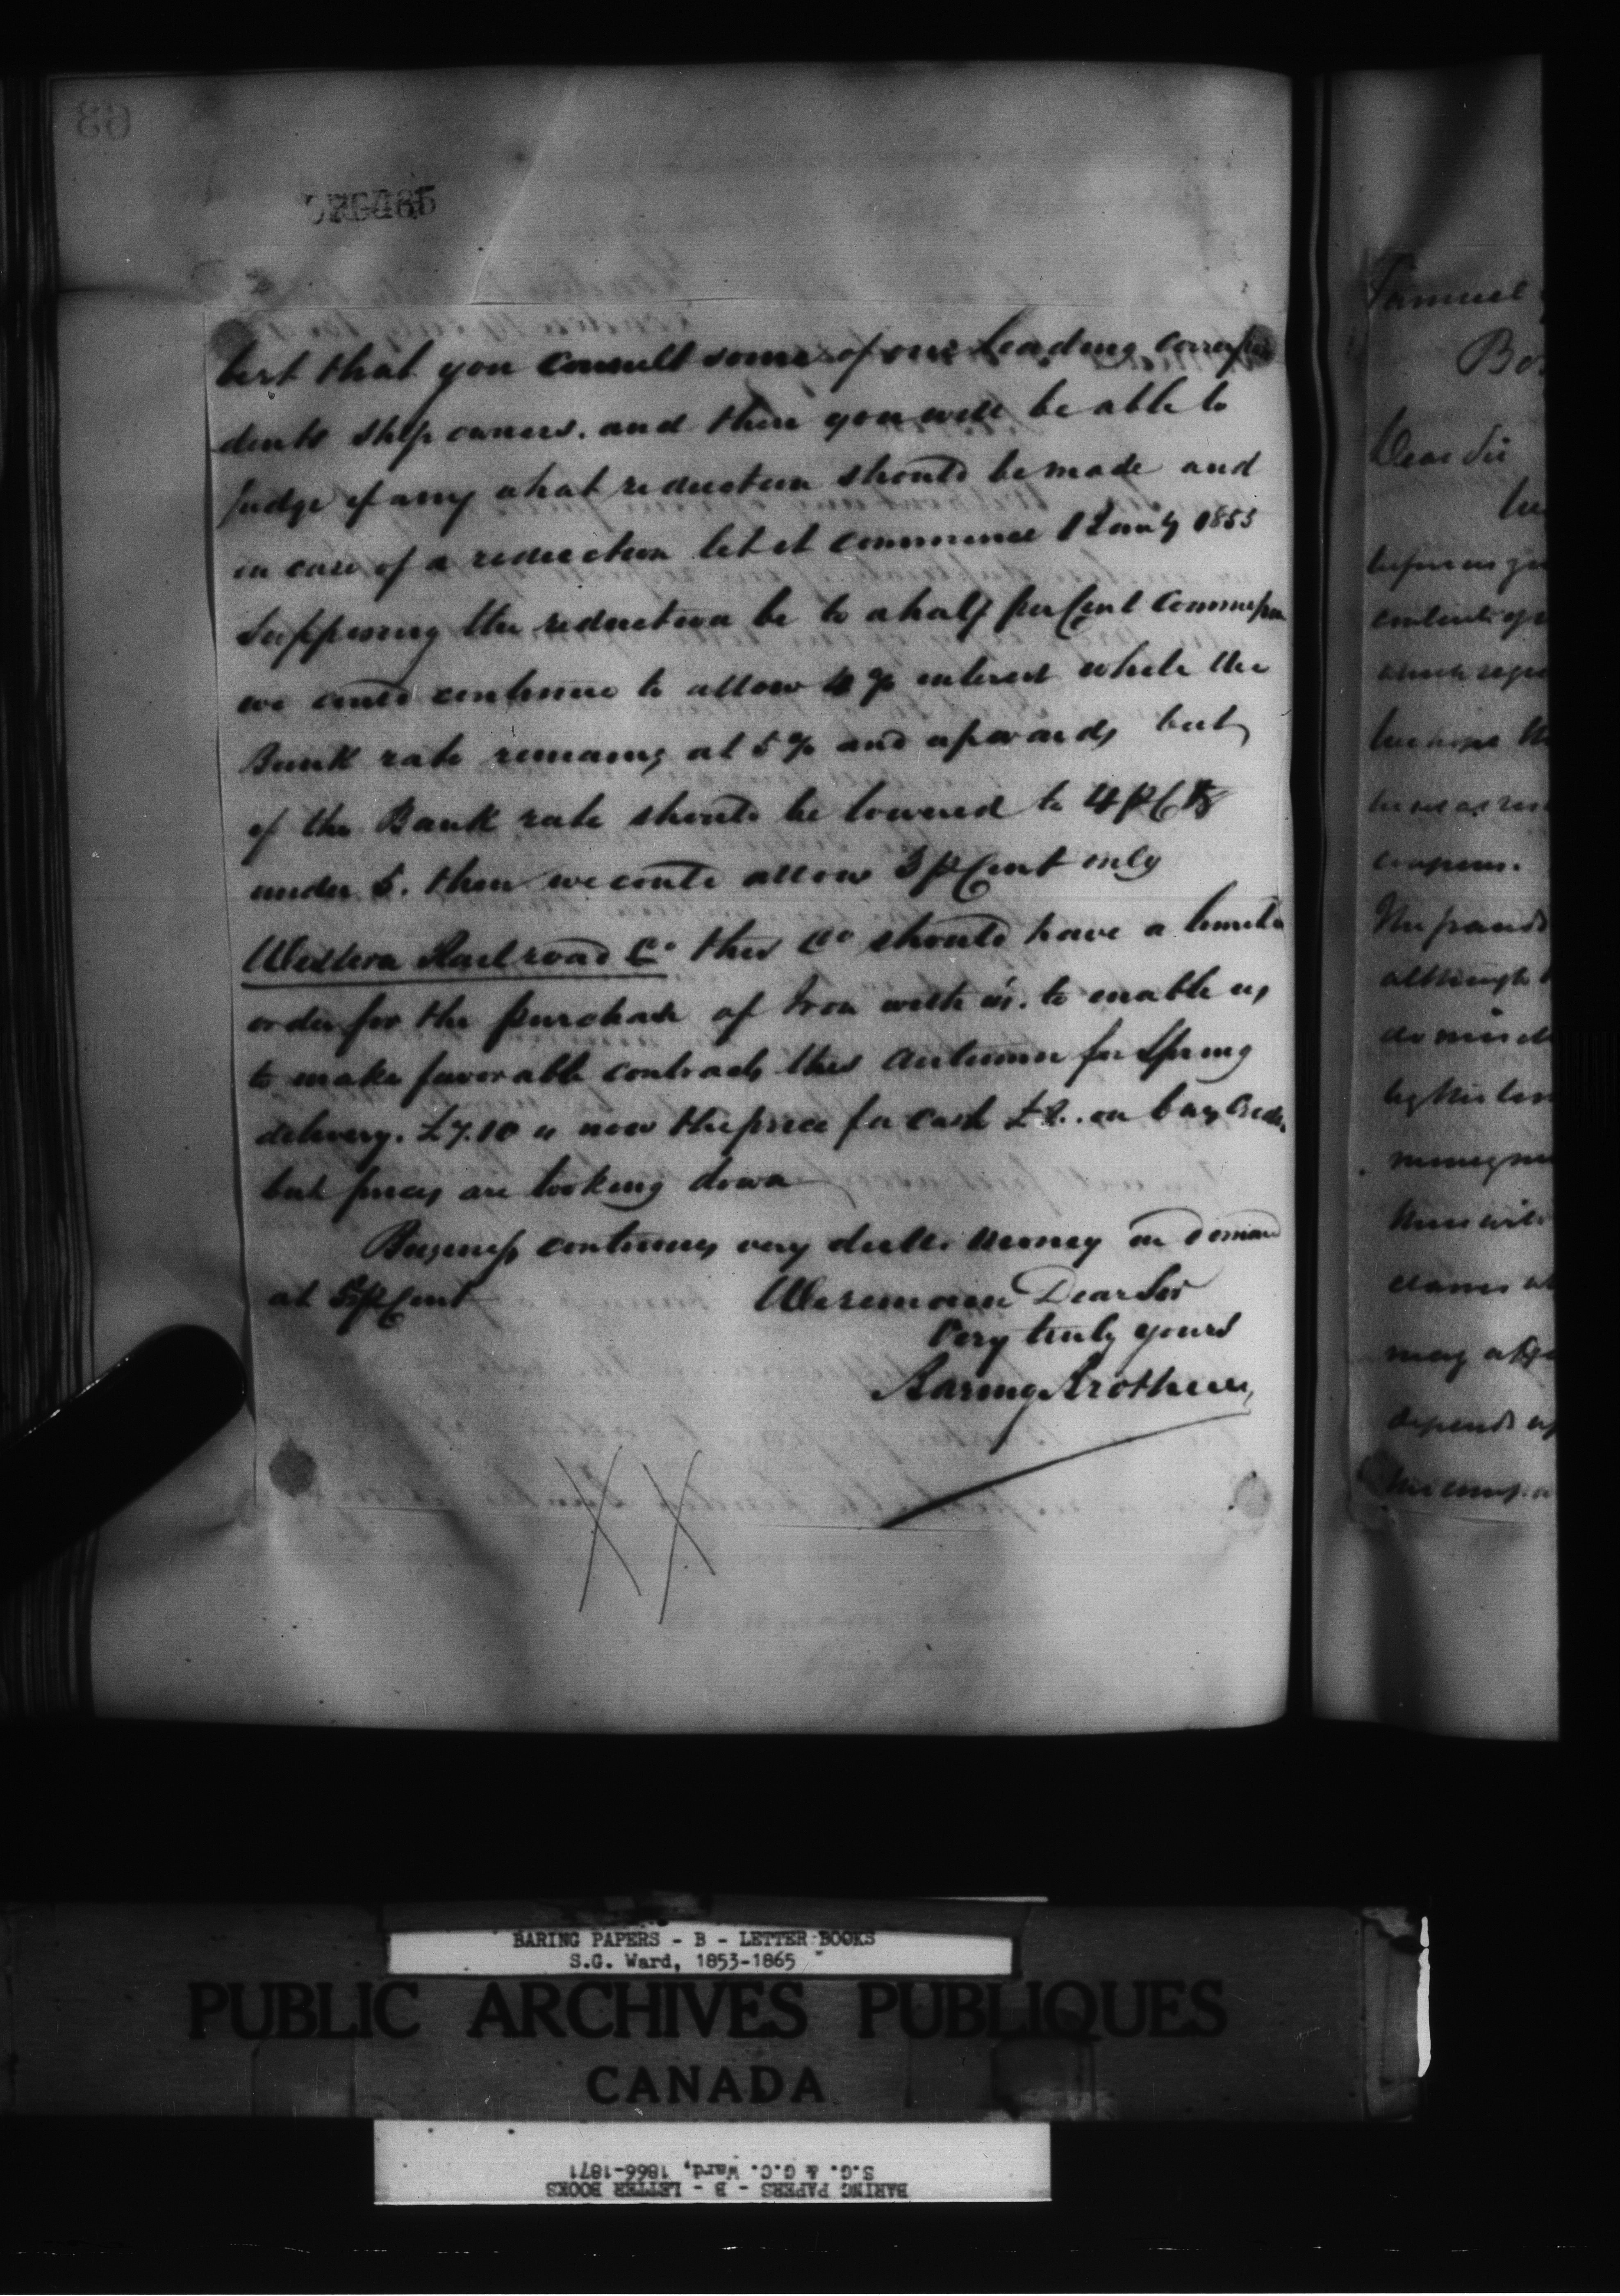 best that you consult some of our leading correspon
dents ship owners. and then you will be able to
judge if any what reduction should be made and
in case of a reduction let it commence 1 Jany 1855
Supposing the reduction be to a half per Cent Commission
we could continue to allow 4 % interest while the
Bank rate remains at 5 % and upwards but
if the Bank rate should be lowered to 4 p Ct
under 5. then we could allow 3 p Cent only
Western Railroad Co this Co should have a limited
order for the purchase of Iron with us. to enable us
to make favorable contracts this autumn for Spring
delivery. £7.10 is now the price for cash £8.. on long Credit
but prices are looking down
Business continues very dull. Money in demand
at 5 p Cent
We remain Dear Sir
Very truly yours
Baring Brothers
XX
Samuel
Bo
Dear Sir
which
although
BARING PAPERS - B - LETTER BOOKS
S.G. Ward, 1853-1865
PUBLIC ARCHIVES PUBLIQUES
CANADA
BARING PAPERS - B - LETTER BOOKS
S.G. & G.C. Ward, 1866-1871